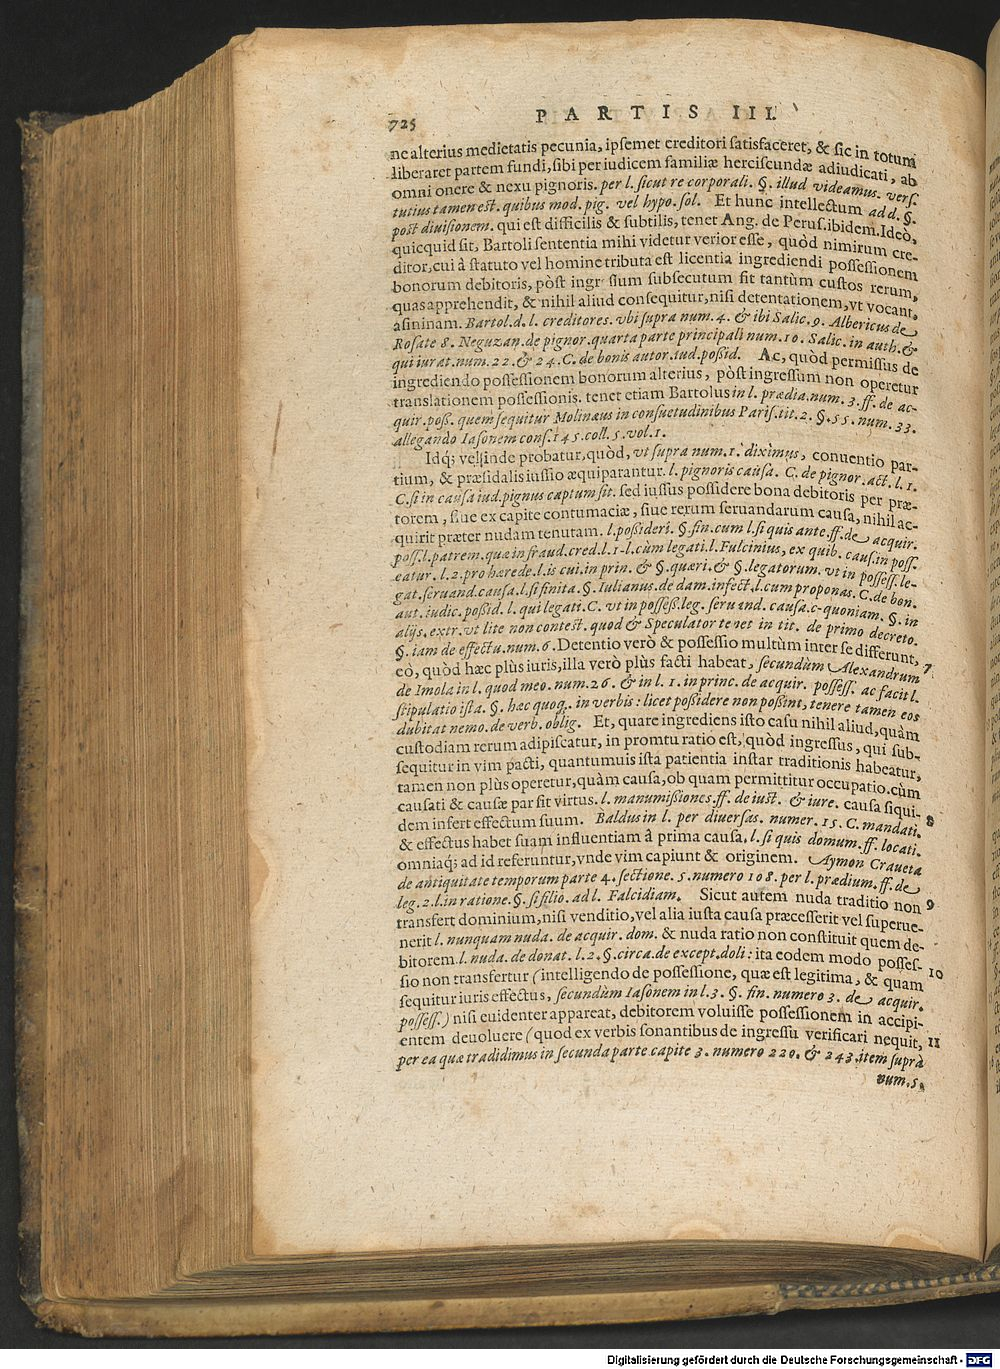 725 PARTIS III.
ne alterius medietatis pecunia, ipsemet creditori satisfaceret, & sic in totum
liberaret partem fundi, sibi per iudicem familiæ herciscundæ adiudicati, ab
omni onere & nexu pignoris. per l. sicut re corporali. §. illud videamus. vers.
tutius tamen est. quibus mod. pig. vel hypo. sol. Et hunc intellectum ad d. §.
post diuisionem. qui est difficilis & subtilis, tenet Ang. de Perus. ibidem. Ideò,
quicquid sit, Bartoli sententia mihi videtur verior esse, quòd nimirum cre-
ditor, cui â statuto vel homine tributa est licentia ingrediendi possessionem
bonorum debitoris, pòst ingr sium subsecutum fit tantùm custos rerum,
quas apprehendit, & nihil aliud consequitur, nisi detentationem, vt vocant,
asininam. Bartol. d. l. creditores. vbi supra num. 4. & ibi Salic. 9. Albericus de
Rosate 8. Neguzan. de pignor. quarta parte principali num. 10. Salic. in auth. &
qui iurat. num. 22. & 24. C. de bonis autor. iud. poßid. Ac, quòd permissus de
ingrediendo possessionem bonorum alterius, pòst ingressum non operetur
translationem possessionis. tenet etiam Bartolus in l. prædia. num. 3. ff. de ac-
quir. poß. quem sequitur Molinæus in consuetudinibus Paris. tit. 2. §. 55. num. 33.
allegando Iasonem cons. 145. coll. 5. vol. 1.
Idq; vel inde probatur, quòd, vt supra num. 1. diximus, conuentio par-
tium, & præsidalis iussio æquiparantur. l. pignoris causa. C. de pignor. act. l. 1.
C. si in causa iud. pignus captum sit. sed iussus possidere bona debitoris per præ-
torem, siue ex capite contumaciæ, siue rerum seruandarum causa, nihil ac-
quirit præter nudam tenutam. l. poßideri. §. fin. cum l. si quis ante. ff. de acquir.
poss. l. patrem. quæ in fraud. cred. l. 1. l. cùm legati. l. Fulcinius, ex quib. caus. in poss.
eatur. l. 2. pro hærede. l. is cui. in prin. & §. quæri. & §. legatorum. vt in possess. le-
gat. seruand. causa. l. si finita. §. Iulianus. de dam. infect. l. cum proponas. C. de bon.
aut. iudic. poßid. l. qui legati. C. vt in posseß. leg. seru and. causa. c. quoniam. §. in
alijs. extr. vt lite non contest. quod & Speculator tenet in tit. de primo decreto.
§. iam de effectu. num. 6. Detentio verò & possessio multùm inter se differunt,
eò, quòd hæc plùs iuris, illa verò plùs facti habeat, secundùm Alexandrum 7
de Imola in l. quod meo. num. 26. & in l. 1. in princ. de acquir. possess. ac facit l.
stipulatio ista. §. hæc quoq. in verbis: licet poßidere non poßint, tenere tamen eos
dubitat nemo. de verb. oblig. Et, quare ingrediens isto casu nihil aliud, quàm
custodiam rerum adipiscatur, in promtu ratio est, quòd ingressus, qui sub-
sequitur in vim pacti, quantumuis ista patientia instar traditionis habeatur,
tamen non plùs operetur, quàm causa, ob quam permittitur occupatio. cùm
causati & causæ par sit virtus. l. manumißiones. ff. de iust. & iure. causa siqui- 8
dem infert effectum suum. Baldus in l. per diuersas. numer. 15. C. mandati.
& effectus habet suam influentiam â prima causa. l. si quis domum. ff. locati.
omniaq; ad id referuntur, vnde vim capiunt & originem. Aymon Craueta
de antiquitate temporum parte 4. sectione. 5. numero 108. per l. prædium. ff. de
leg. 2. l. in ratione. §. si filio. ad l. Falcidiam. Sicut autem nuda traditio non 9
transfert dominium, nisi venditio, vel alia iusta causa præcesserit vel superue-
nerit l. nunquam nuda. de acquir. dom. & nuda ratio non constituit quem de-
bitorem. l. nuda. de donat. l. 2. §. circa. de except. doli: ita eodem modo posses-
sio non transfertur (intelligendo de possessione, quæ est legitima, & quam 10
sequitur iuris effectus, secundùm Iasonem in l. 3. §. fin. numero 3. de acquir.
possess.) nisi euidenter appareat, debitorem voluisse possessionem in accipi-
entem deuoluere (quod ex verbis sonantibus de ingressu verificari nequit, 11
per ea quæ tradidimus in secunda parte capite 3. numero 220. & 243. item suprà
num. 5.
Digitalisierung gefördert durch die Deutsche Forschungsgemeinschaft - DFG